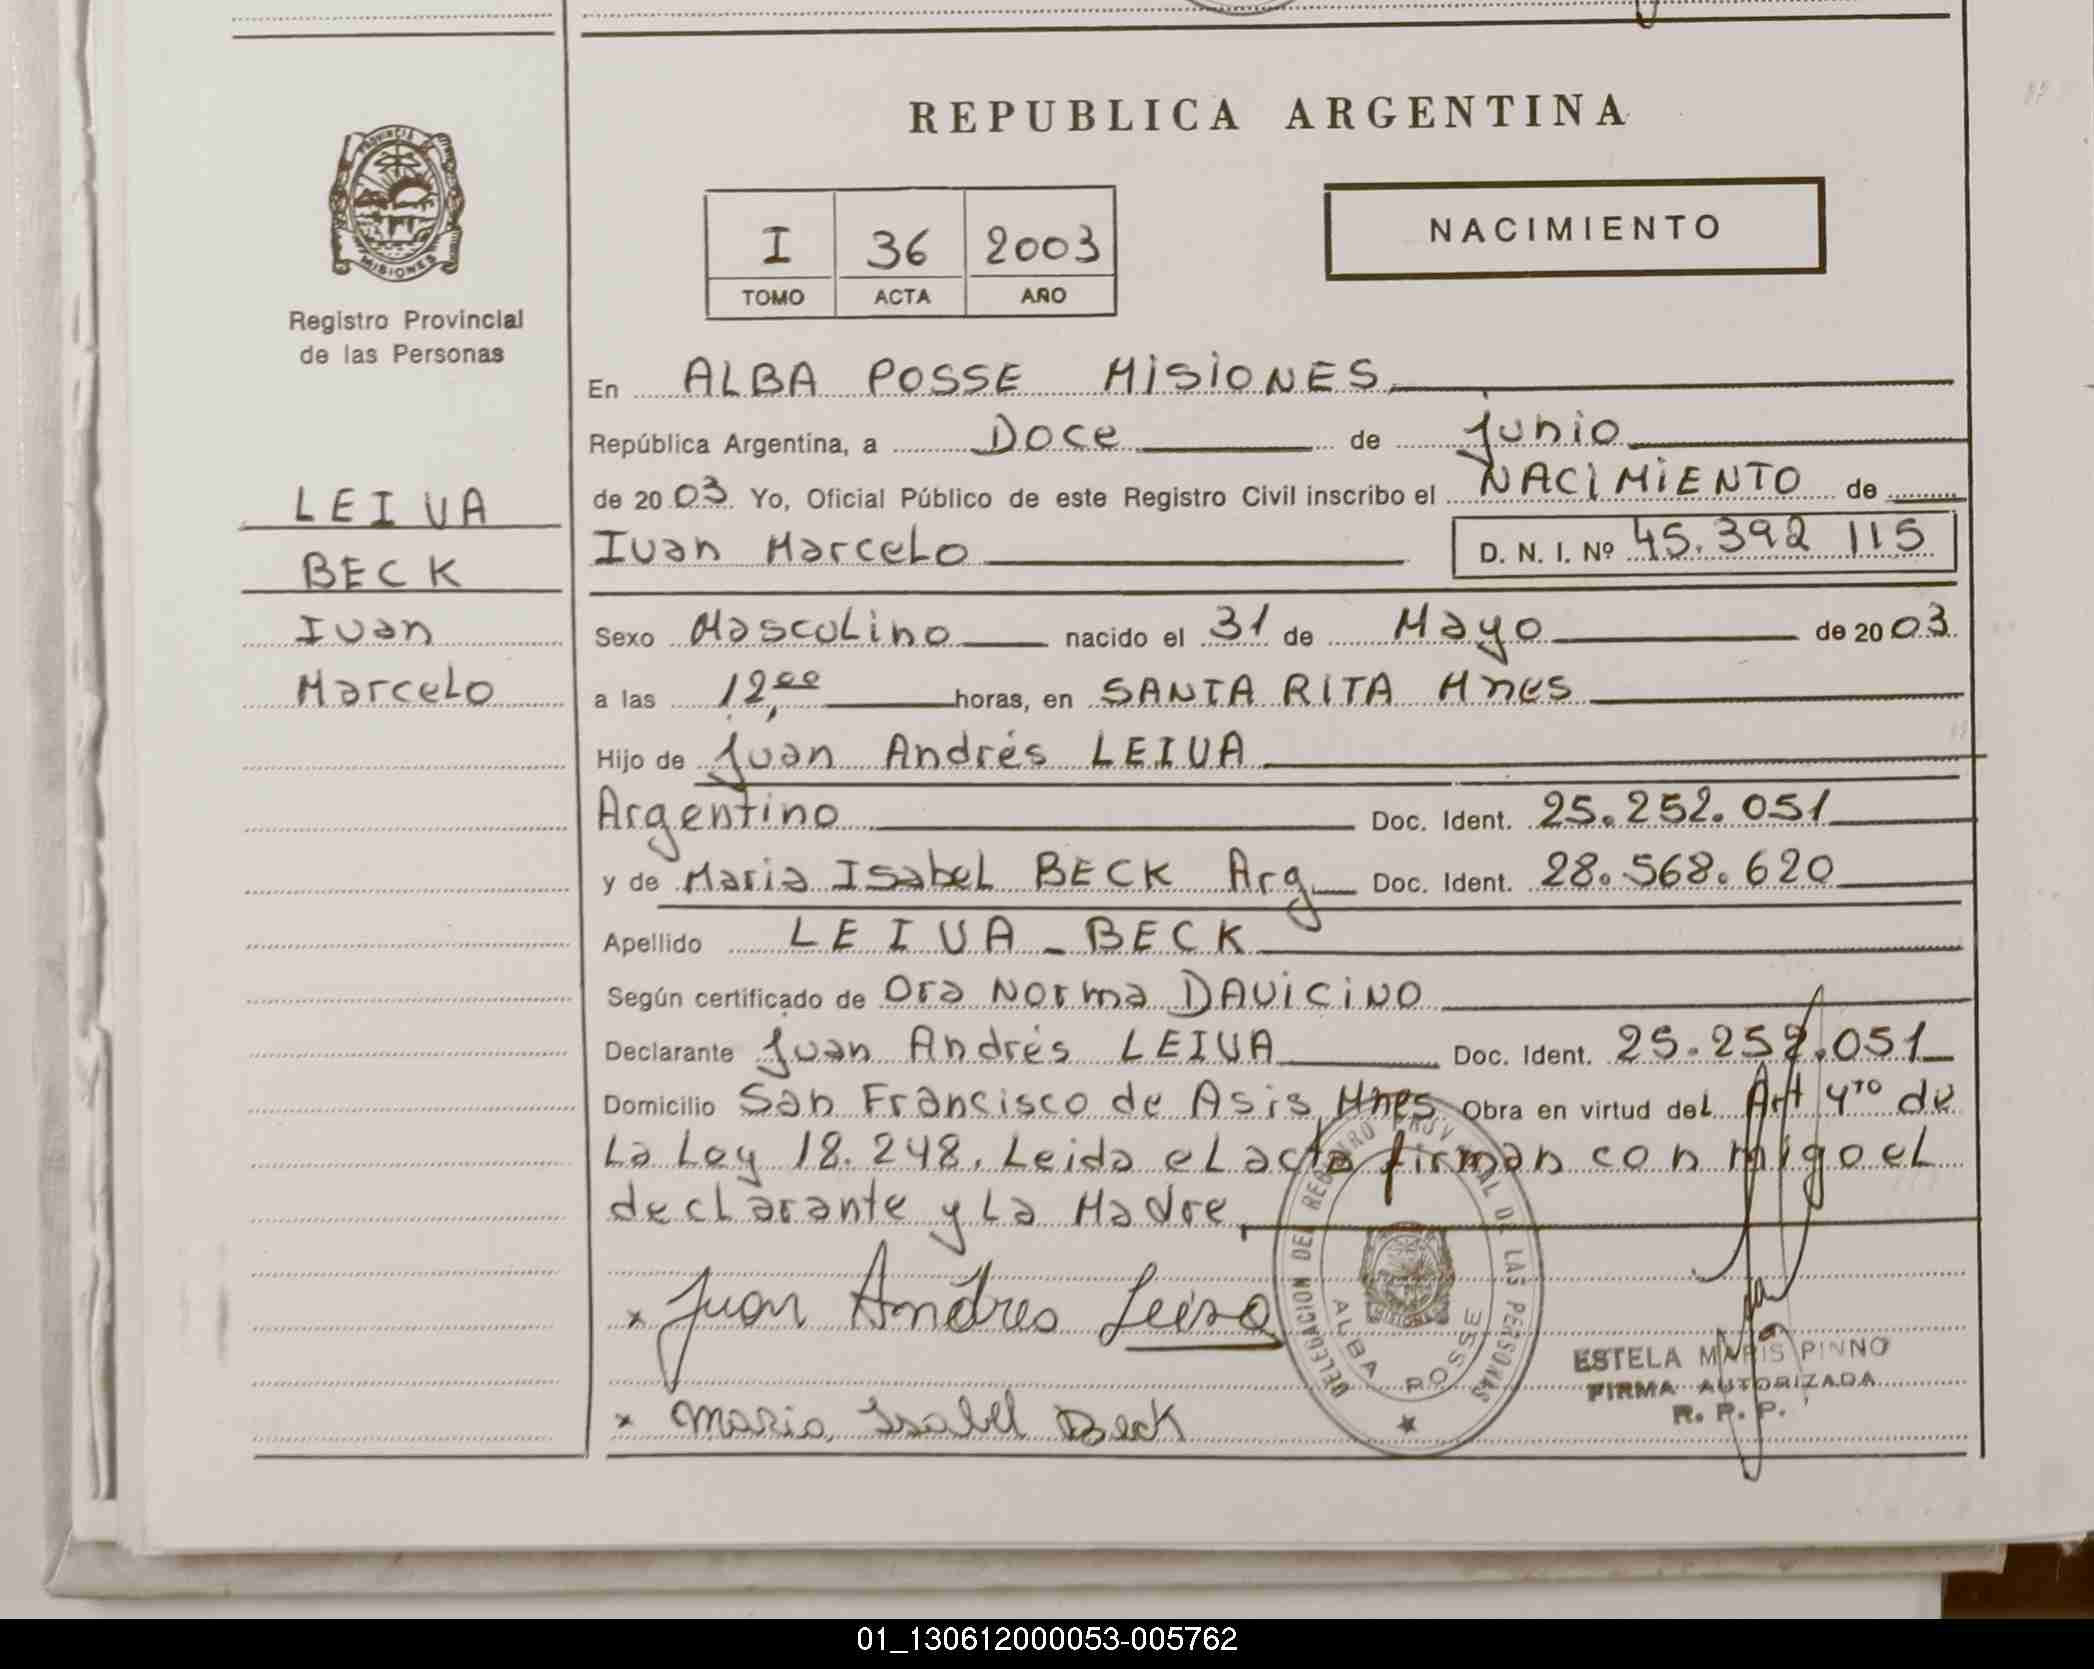 REPUBLICA ARGENTINA
PROVINCIA DE
MISIONES
Registro Provincial
de las Personas
I 36 2003
TOMO ACTA AÑO
NACIMIENTO
En ALBA POSSE MISIONES
República Argentina, a Doce de Junio
de 2003 Yo, Oficial Público de este Registro Civil inscribo el NACIMIENTO de
Ivan Marcelo D. N. I. Nº 45.392 115
LEIVA
BECK
Ivan
Marcelo
Sexo Masculino nacido el 31 de Mayo de 2003
a las 12,00 horas, en SANTA RITA Mnes
Hijo de Juan Andrés LEIVA
Argentino Doc. Ident. 25.252.051
y de Maria Isabel BECK Arg Doc. Ident. 28.568.620
Apellido LEIVA - BECK
Según certificado de Dra Norma DAVICINO
Declarante Juan Andrés LEIVA Doc. Ident. 25.252.051
Domicilio San Francisco de Asis Mnes Obra en virtud del Art 4to de
La Ley 18.248. Leida el acta firman con migo el
declarante y La Madre
x Juan Andres Leiva
x Maria Isabel Beck
DELEGACION DEL REGISTRO PROVINCIAL DE LAS PERSONAS
ALBA POSSE
ESTELA MARIS PINNO
FIRMA AUTORIZADA
R. P. P.
01_130612000053-005762